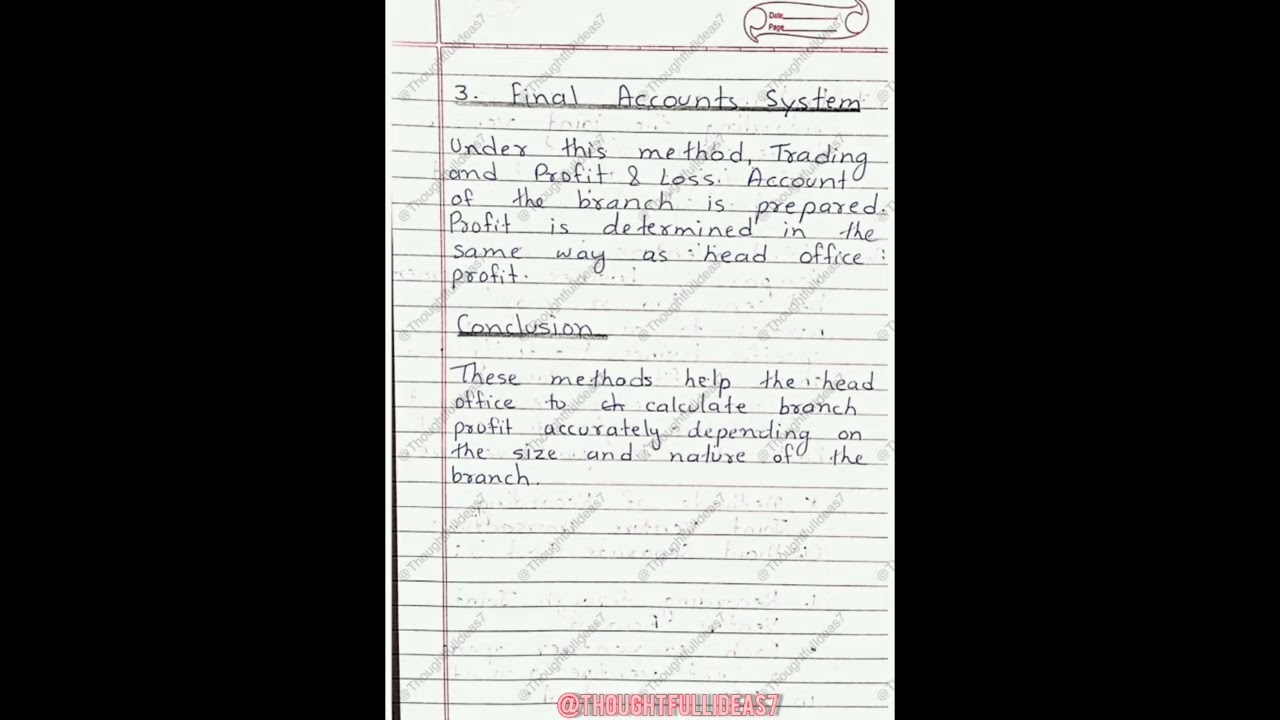 Date
Page
3. Final Accounts System
Under this method, Trading
and Profit & Loss. Account
of the branch is prepared.
Profit is determined in the
same way as head office
profit.
Conclusion
These methods help the head
office to ch calculate branch
profit accurately depending on
the size and nature of the
branch.
@Thoughtfullideas7
@THOUGHTFULLIDEAS7